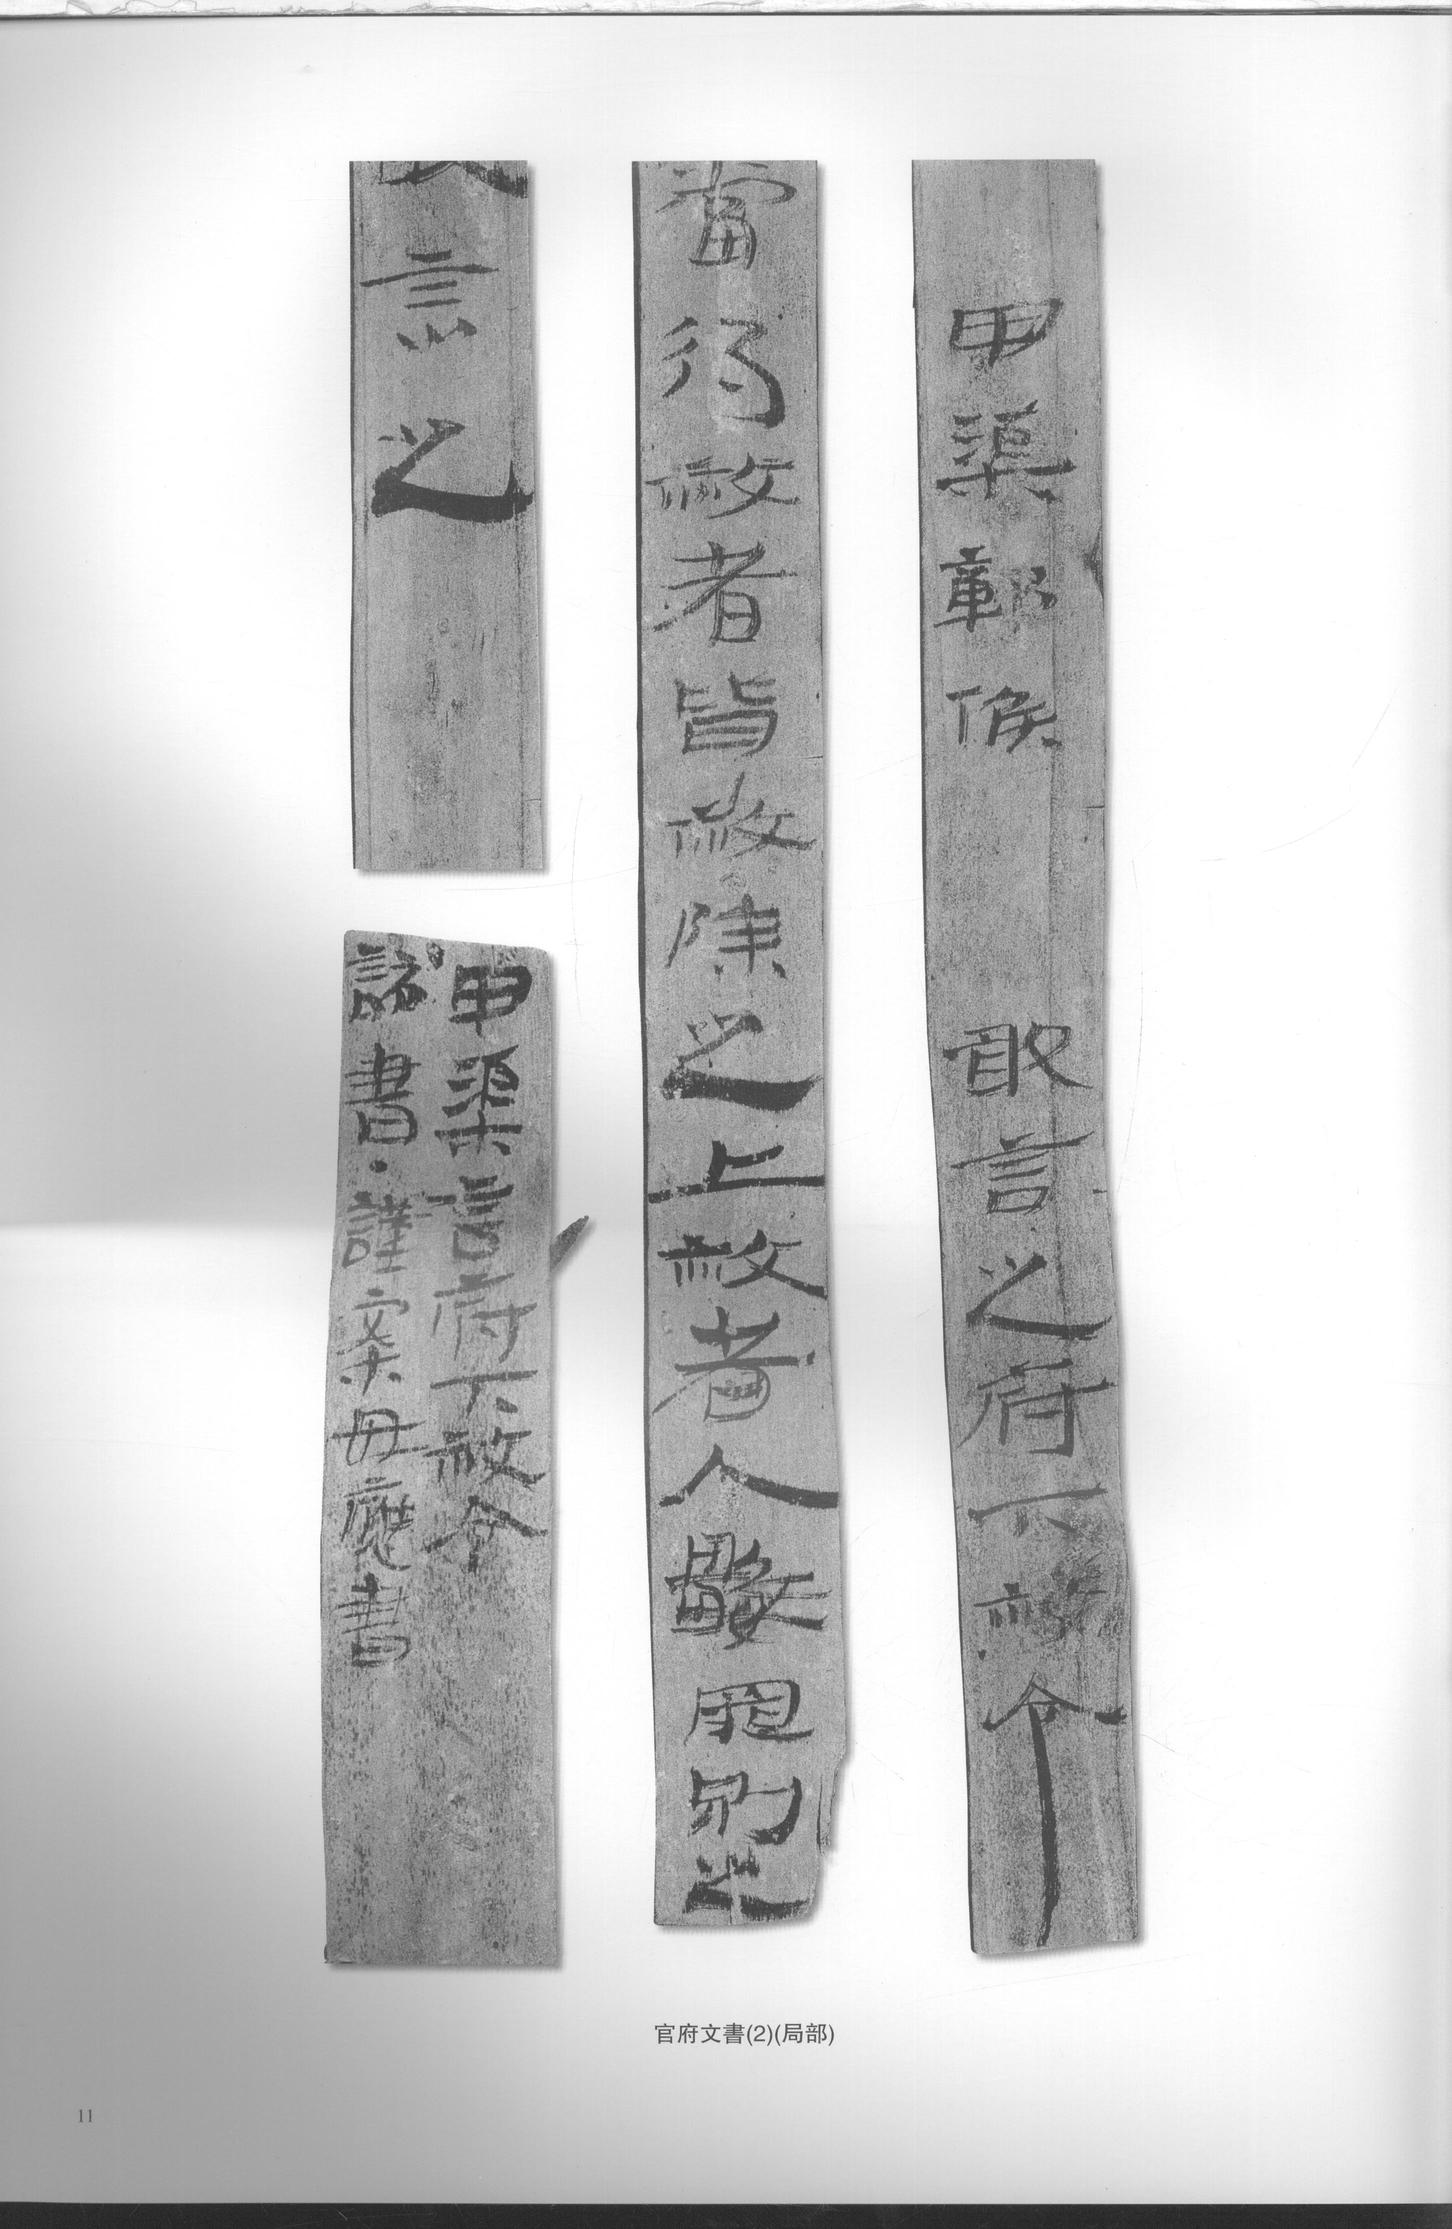 甲渠鄣候　敢言之府下赦令
當得赦者皆赦除之上赦者人數罪別之
言之
甲渠言府下赦令
詔書・謹案毋應書
官府文書(2)(局部)
11